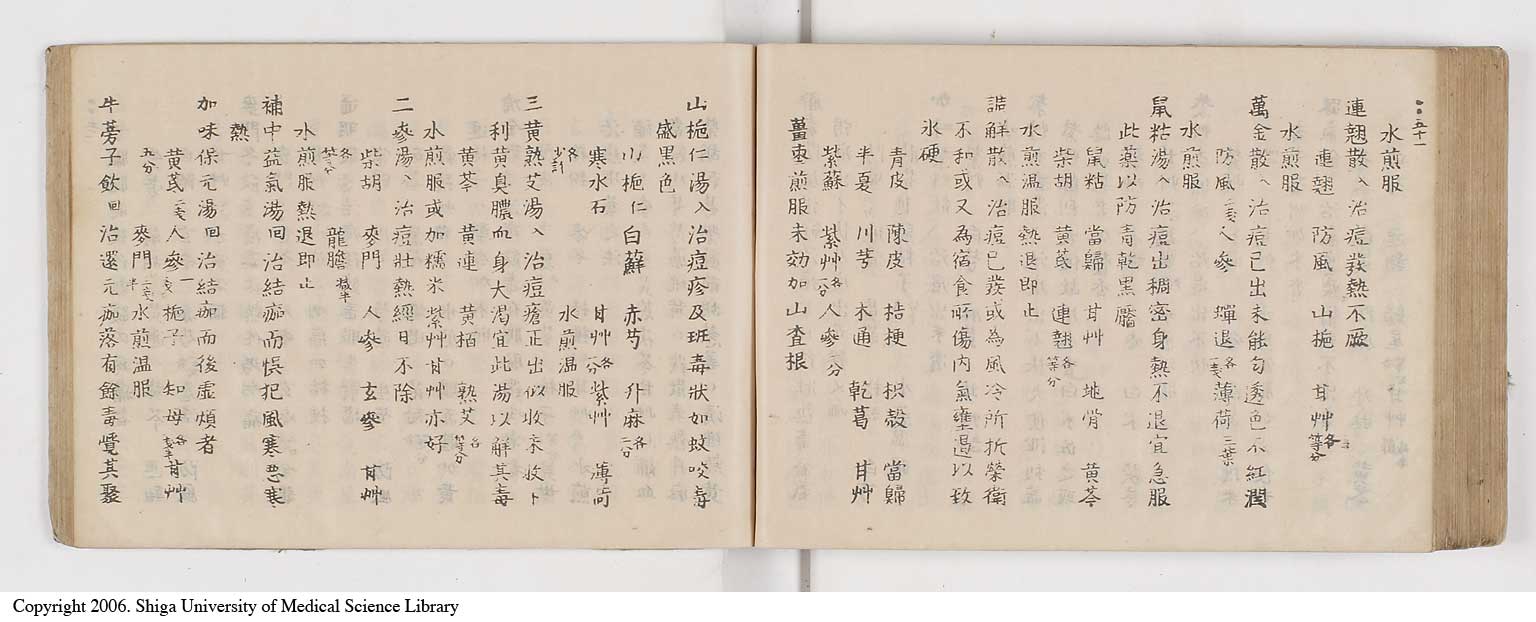 五十一
水煎服
連翹散入治痘發熱不厥
連翹 防風 山梔 甘艸各等分
水煎服
萬金散入治痘已出未能匀透色不紅潤
防風 人參 蟬退各 薄荷三葉
水煎服
鼠粘湯入治痘出稠密身熱不退宜急服
此藥以防青乾黒靨
鼠粘 當歸 甘艸 地骨 黄芩
柴胡 黄芪 連翹各等分
水煎温服熱退即止
詰鮮散入治痘已發或為風冷所折榮衛
不和或又為宿食所傷内氣壅遏以致
氷硬
青皮 陳皮 桔梗 枳殻 當歸
半夏 川芎 木通 乾葛 甘艸
紫蘇 紫艸各分 人參分
薑棗煎服未効加山査根
山梔仁湯入治痘疹及班毒狀如蚊咬毒
盛黒色
山梔仁 白蘚 赤芍 升麻各二分
寒水石 甘艸一分 紫艸 薄荷
各少計 水煎温服
三黄熟艾湯入治痘瘡正出似收未收卜
利黄臭膿血身大渇宜此湯以解其毒
黄芩 黄連 黄栢 熟艾各等分
水煎服或加糯米紫艸甘艸亦好
二參湯入治痘壯熱經日不除
柴胡 麥門 人參 玄參 甘艸
各等分 龍膽減半
水煎服熱退即止
補中益氣湯回治結痂而悞犯風寒惡寒
熱
加味保元湯回治結痂而後虚煩者
黄芪 人參 梔子 知母各 甘艸
五分 麥門 水煎温服
牛蒡子飲回治還元痂落有餘毒覺其聚